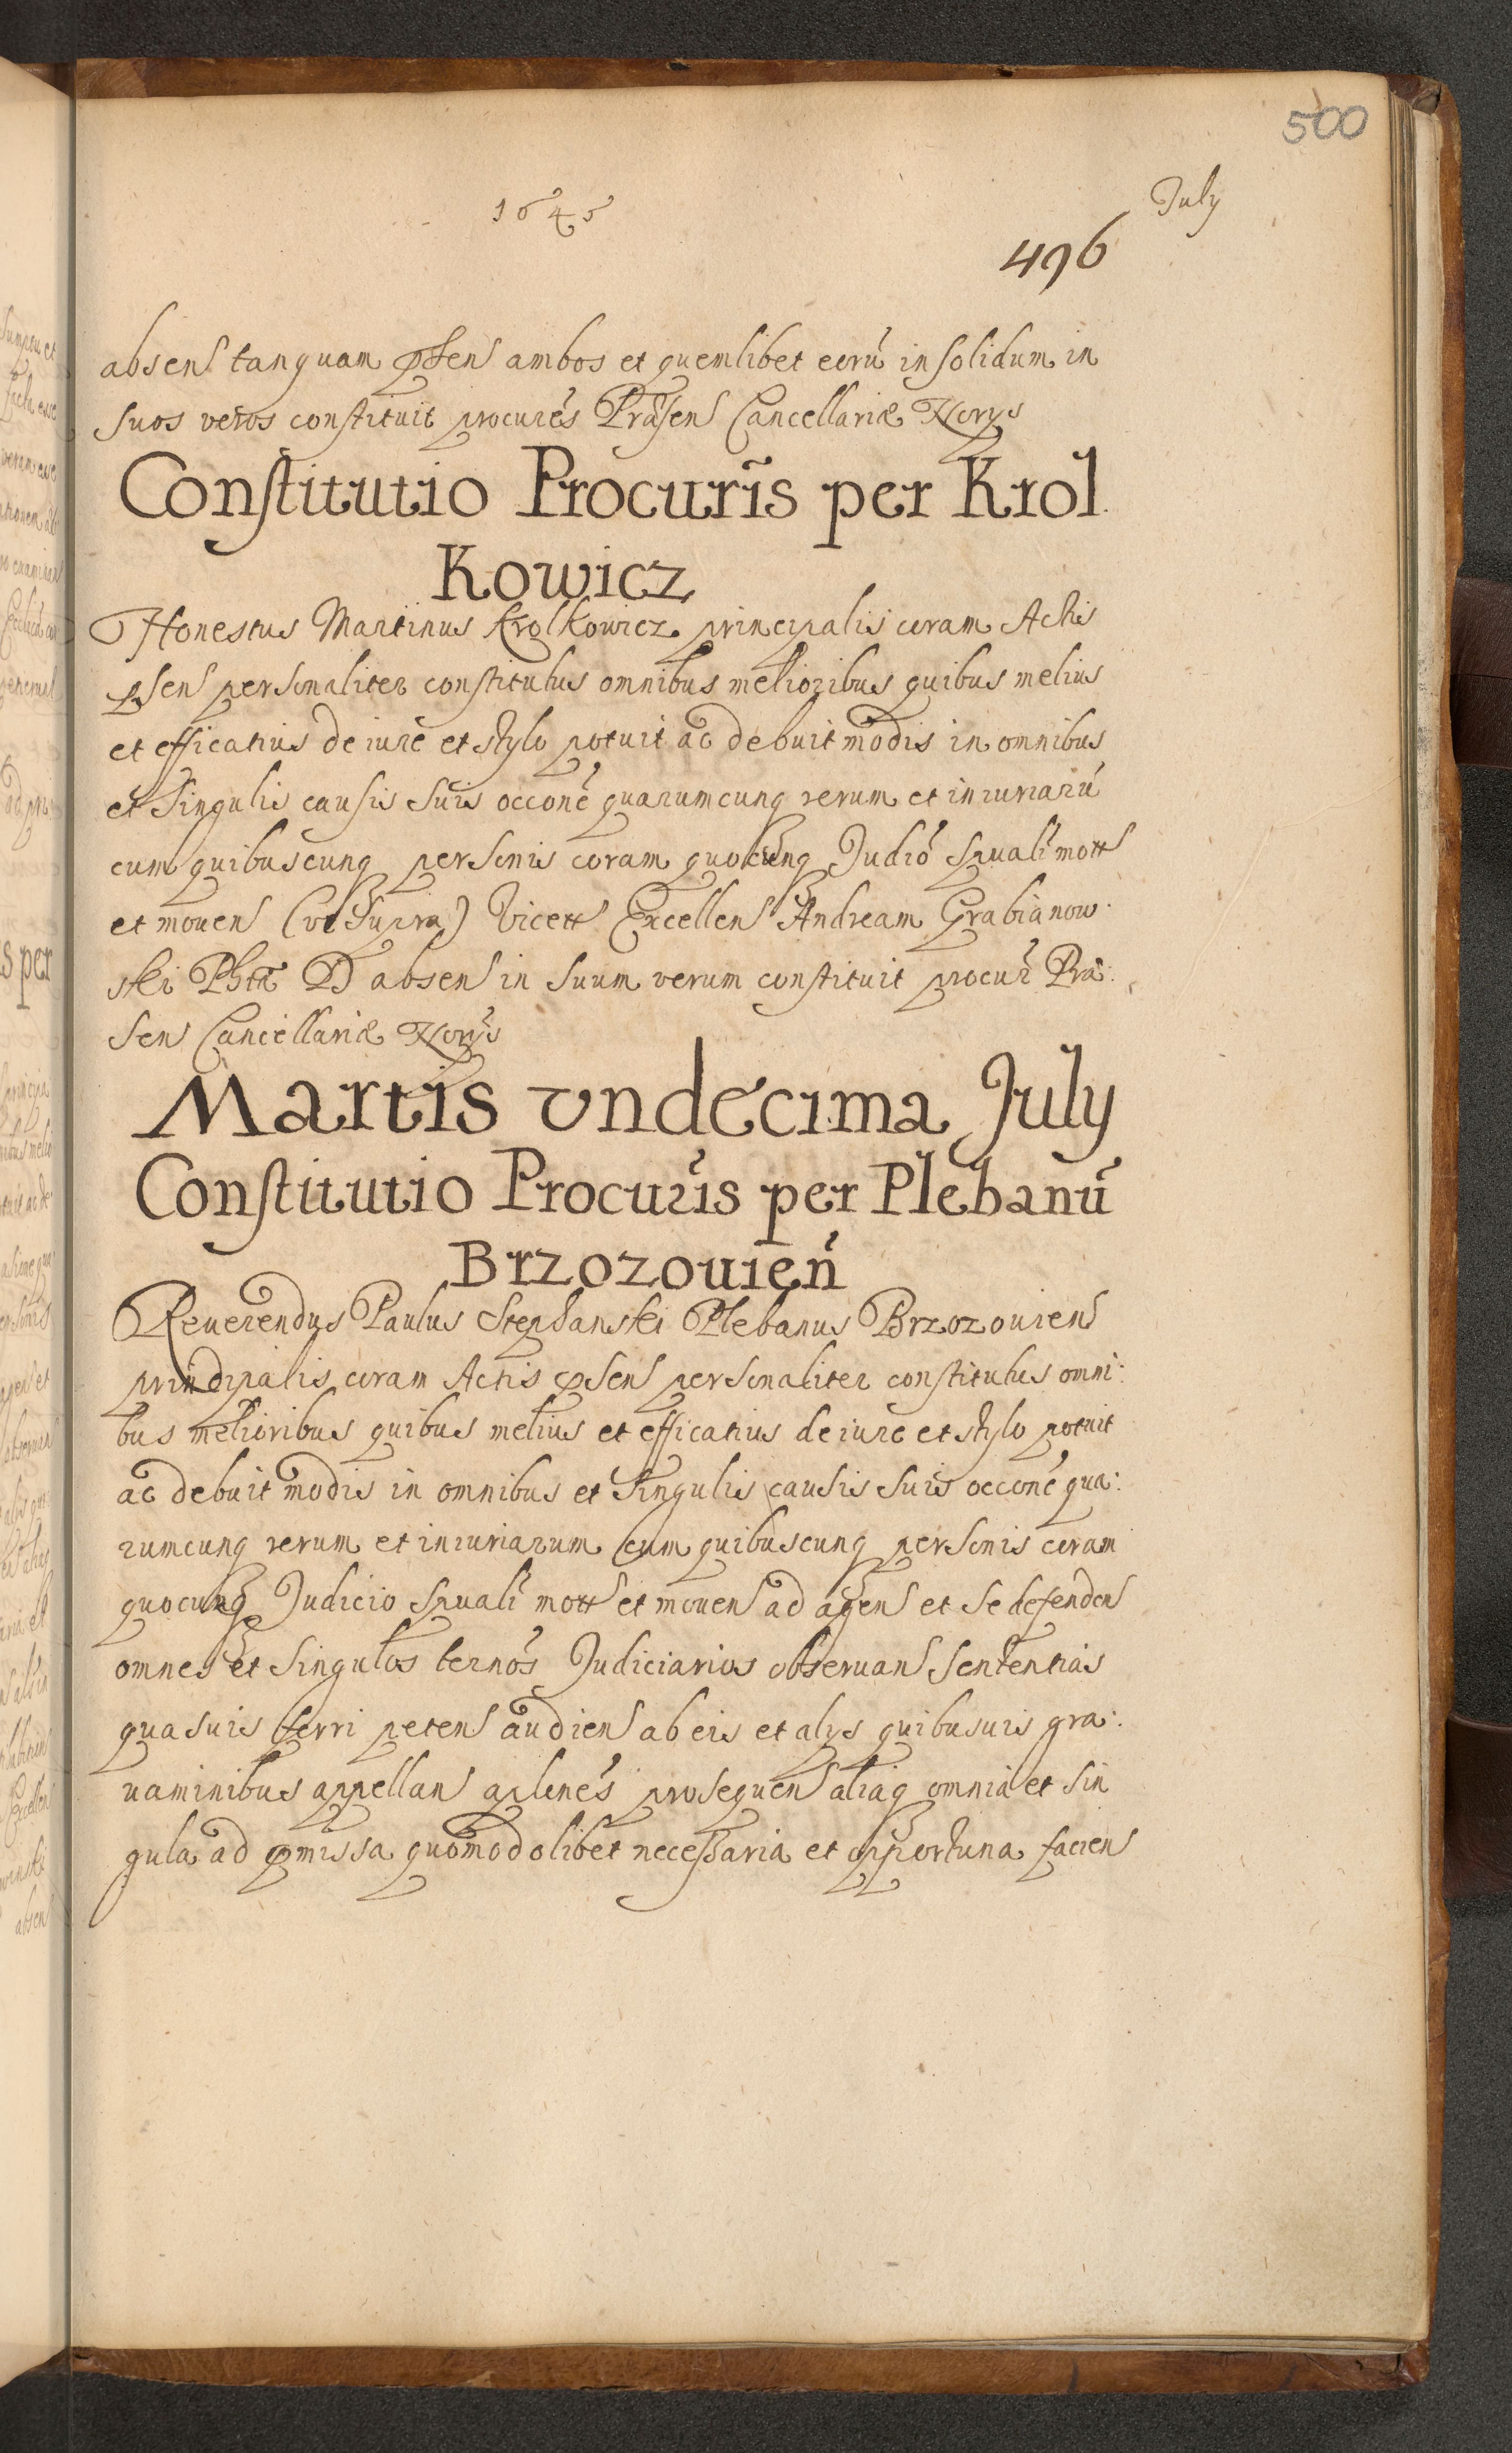 500
1645
July
496
absens tanquam pñsens ambos et quemlibet eorũ in solidum in
suos veros constituit procures Præsen Cancellariæ Norys
Constitutio Procuris per Krol
Kowicz
Honestus Martinus Krolkowicz principalis coram Actis
psens personaliter constitutus omnibus melioribus quibus melius
et efficatius de iure et stylo potuit ac debuit modis in omnibus
et singulis causis suis occone quarumcunq rerum et iniuriarũ
cum quibuscunq personis coram quocunq Judio spuali mott
et mouen (vt supra) Vicett Excellen Andream Grabianow:
ski Phiæ D absen in suum verum constituit procur Præ:
sen Cancellariæ Norys
Martis vndecima July
Constitutio Procuris per Plebanũ
Brzozouien
Reuerendus Paulus Stephanski Plebanus Brzozouien
principalis coram Actis psens personaliter constitutus omni:
bus melioribus quibus melius et efficatius de iure et stylo potuit
ac debuit modis in omnibus et singulis causis suis occone qua:
rumcunq rerum et iniuriarum cum quibuscunq personis coram
quocunq Judicio spuali mott et mouen ad agen et se defenden
omnes et singulos ternos Judiciarios obseruan sententias
quasuis ferri peten audien ab eis et alys quibusuis gra:
uaminibus appellan aplenes prosequen aliaq omnia et sin
gula ad pmissa quomodolibet necessaria et opportuna facien